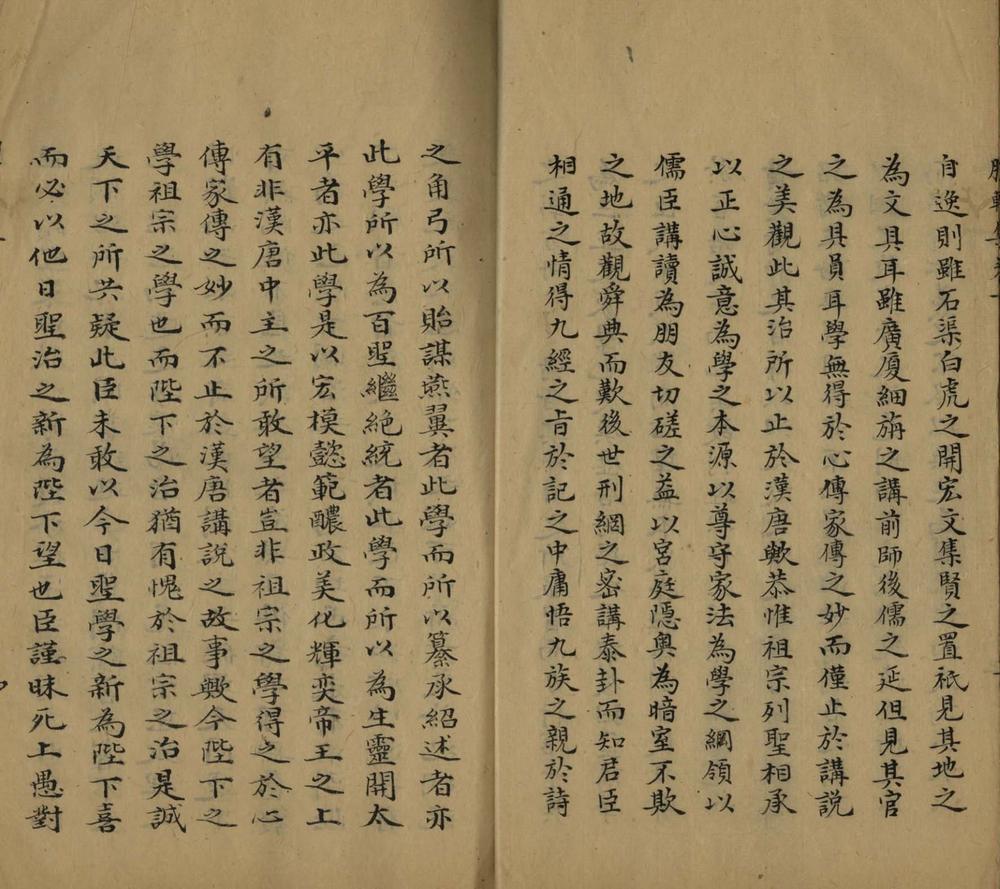 自逸則雖石渠白虎之開宏文集賢之置祇見其地之
為文具耳雖廣厦細旃之講前師後儒之延但見其官
之為具員耳學無得於心傳家傳之妙而僅止於講説
之美觀此其治所以止於漢唐歟恭惟祖宗列聖相承
以正心誠意為學之本源以尊守家法為學之綱領以
儒臣講讀為朋友切磋之益以宮庭隱奥為暗室不欺
之地故觀舜典而歎後世刑網之密講泰卦而知君臣
相通之情得九經之旨於記之中庸悟九族之親於詩
之角弓所以貽謀燕翼者此學而所以纂承紹述者亦
此學所以為百聖繼絶統者此學而所以為生靈開太
平者亦此學是以宏模懿範醲政美化輝奕帝王之上
有非漢唐中主之所敢望者豈非祖宗之學得之於心
傳家傳之妙而不止於漢唐講説之故事歟今陛下之
學祖宗之學也而陛下之治猶有愧於祖宗之治是誠
天下之所共疑此臣未敢以今日聖學之新為陛下喜
而必以他日聖治之新為陛下望也臣謹昧死上愚對